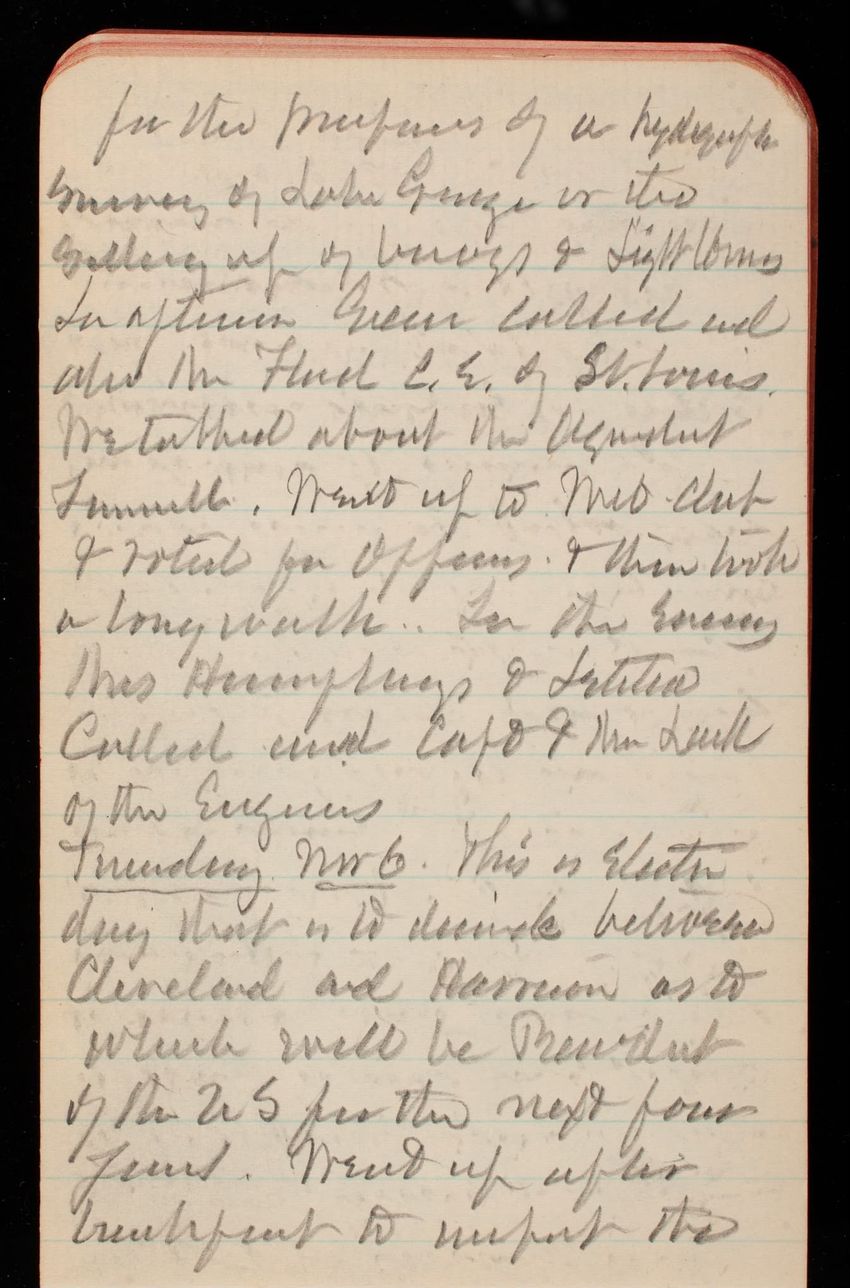 for the purposes of a hydrograph
Survey of Lake George or the
Setting up of buoys & Light Houses
In afternoon Green called and
also Mr Flad C.E. of St. Louis.
We talked about the Aqueduct
Tunnell. Went up to Met Club
& voted for Officers. & then took
a long walk.. In the Evening
Mrs Humphreys & Letitia
Called and Capt & Mrs Lusk
of the Engineers
Tuesday Nov 6. This is Election
day that is to decide between
Cleveland and Harrison as to
which will be President
of the US for the next four
Years. Went up after
breakfast to inspect the